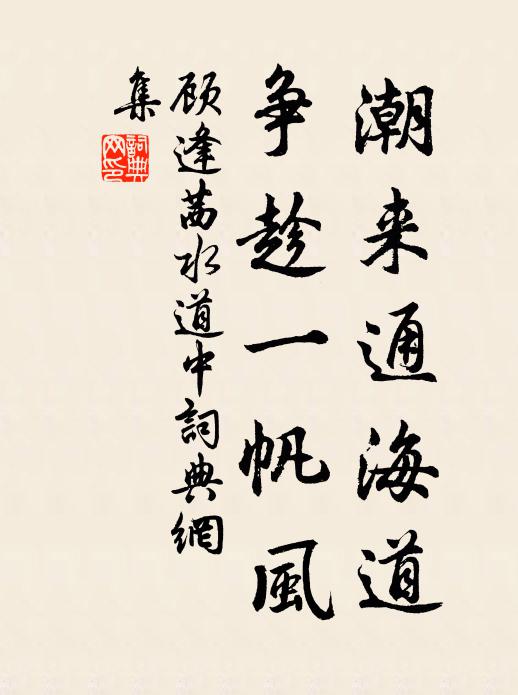 潮来通海道
争趁一帆風
顾逢茜水道中詞典網
集
詞典
网印